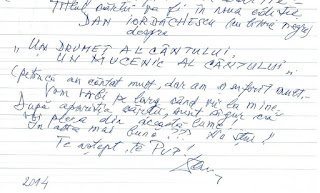 Titlul cărții va fi, în noua ediție
DAN IORDĂCHESCU (cu litere negre)
despre
"UN DRUMEȚ AL CÂNTULUI,
UN MUCENIC AL CÂNTULUI"
(pentru că am cântat mult, dar am și suferit mult.-
Vom vorbi pe larg când vii la mine-
După apariția cărții, sunt sigur că-
voi pleca din această lume!
În alta mai bună??? Nu știu!
Te aștept, te Pup!
Dan
2014